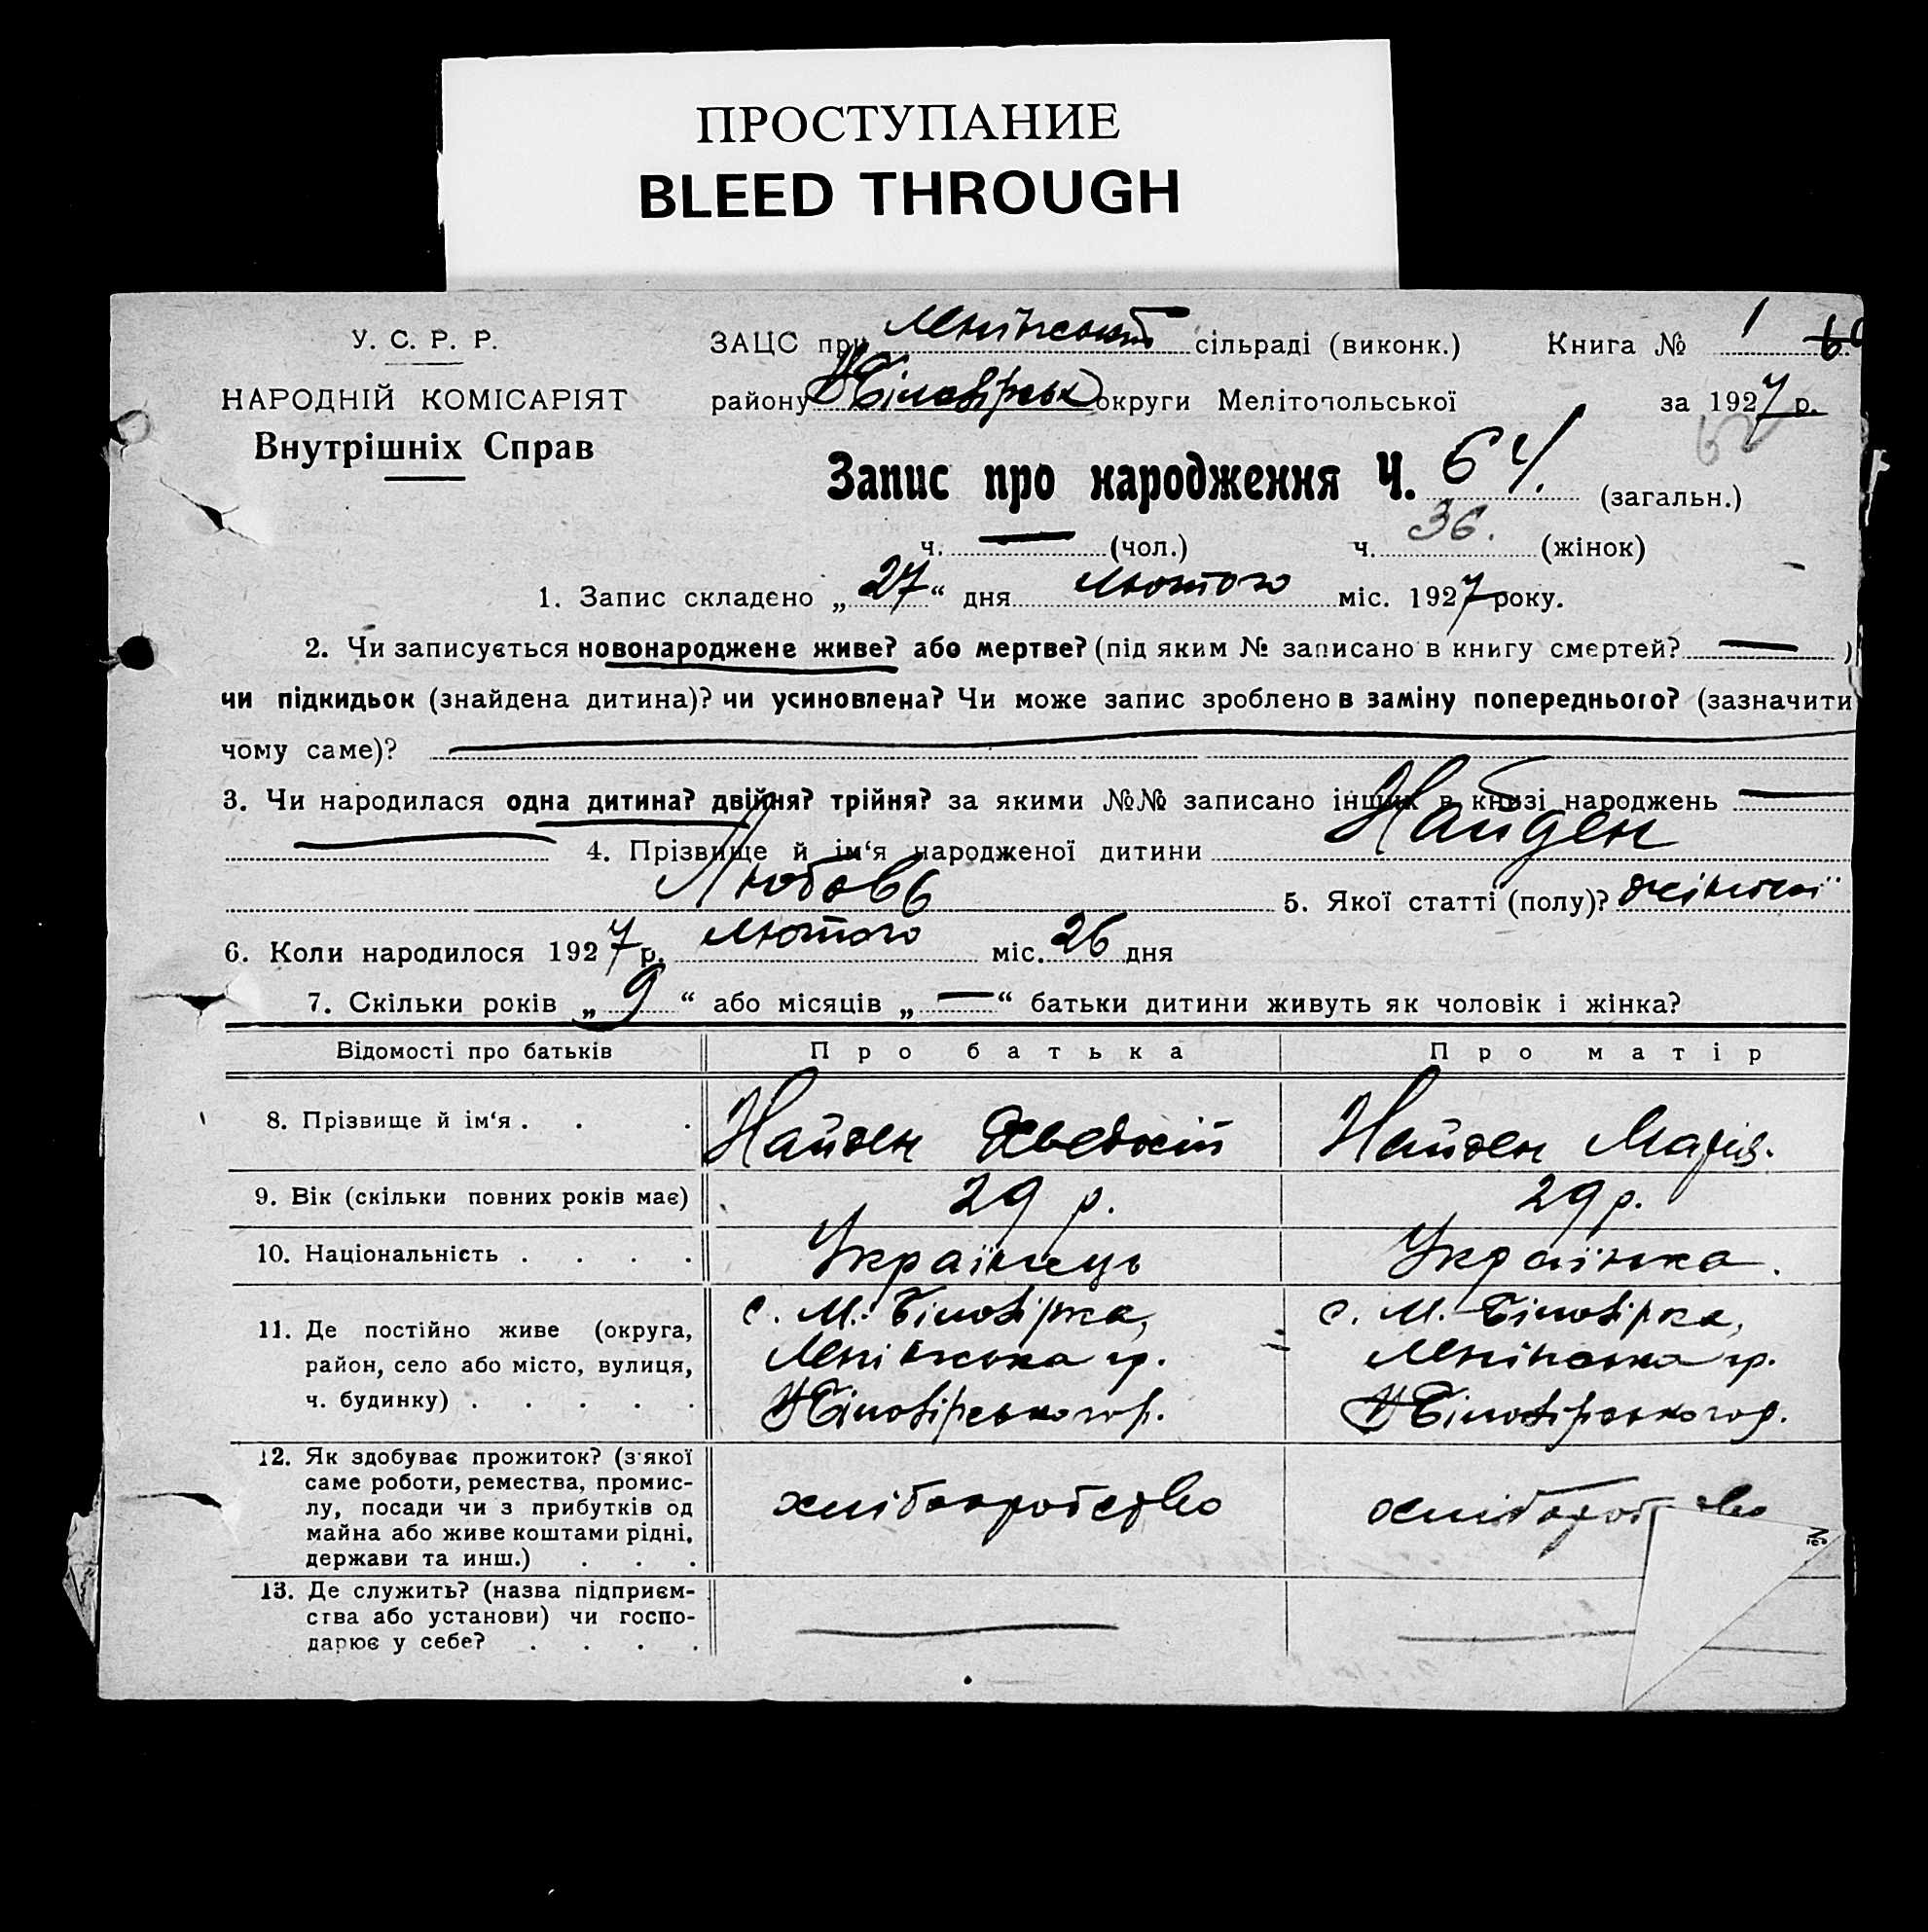 ПРОСТУПАНИЕ
BLEED THROUGH
У. С. Р. Р.
НАРОДНІЙ КОМІСАРІЯТ
Внутрішніх Справ
ЗАЦС при Ленінській сільраді (виконк.) Книга № 1
району В Білозірськ округи Мелітопольської за 1927 р.
Запис про народження Ч. 64. (загальн.)
ч. — (чол.) ч. 36. (жінок)
1. Запис складено „27“ дня Лютого міс. 1927 року.
2. Чи записується новонароджене живе? або мертве? (під яким № записано в книгу смертей? — )
чи підкидьок (знайдена дитина)? чи усиновлена? Чи може запис зроблено в заміну попереднього? (зазначити
чому саме)?
3. Чи народилася одна дитина? двійня? трійня? за якими №№ записано інших в книзі народжень —
4. Прізвище й ім‘я народженої дитини Найден
Любовь 5. Якої статті (полу)? жіночої
6. Коли народилося 1927 р. Лютого міс. 26 дня
7. Скільки років „9“ або місяців „—“ батьки дитини живуть як чоловік і жінка?
Відомості про батьків Про батька Про матір
8. Прізвище й ім‘я . . . Найден Найден Марія.
9. Вік (скільки повних років має) 29 р. 29 р.
10. Національність . . . . Українець Українка.
11. Де постійно живе (округа, с. М. Білозірка, с. М. Білозірка,
район, село або місто, вулиця, Ленінська гр. Ленінська гр.
ч. будинку) . . . . . В Білозірського р. В Білозірського р.
12. Як здобуває прожиток? (з якої
саме роботи, ремества, промис-
лу, посади чи з прибутків од хліборобство
майна або живе коштами рідні,
держави та инш.) . . .
№
13. Де служить? (назва підприєм-
ства або установи) чи госпо-
дарює у себе? . . . .